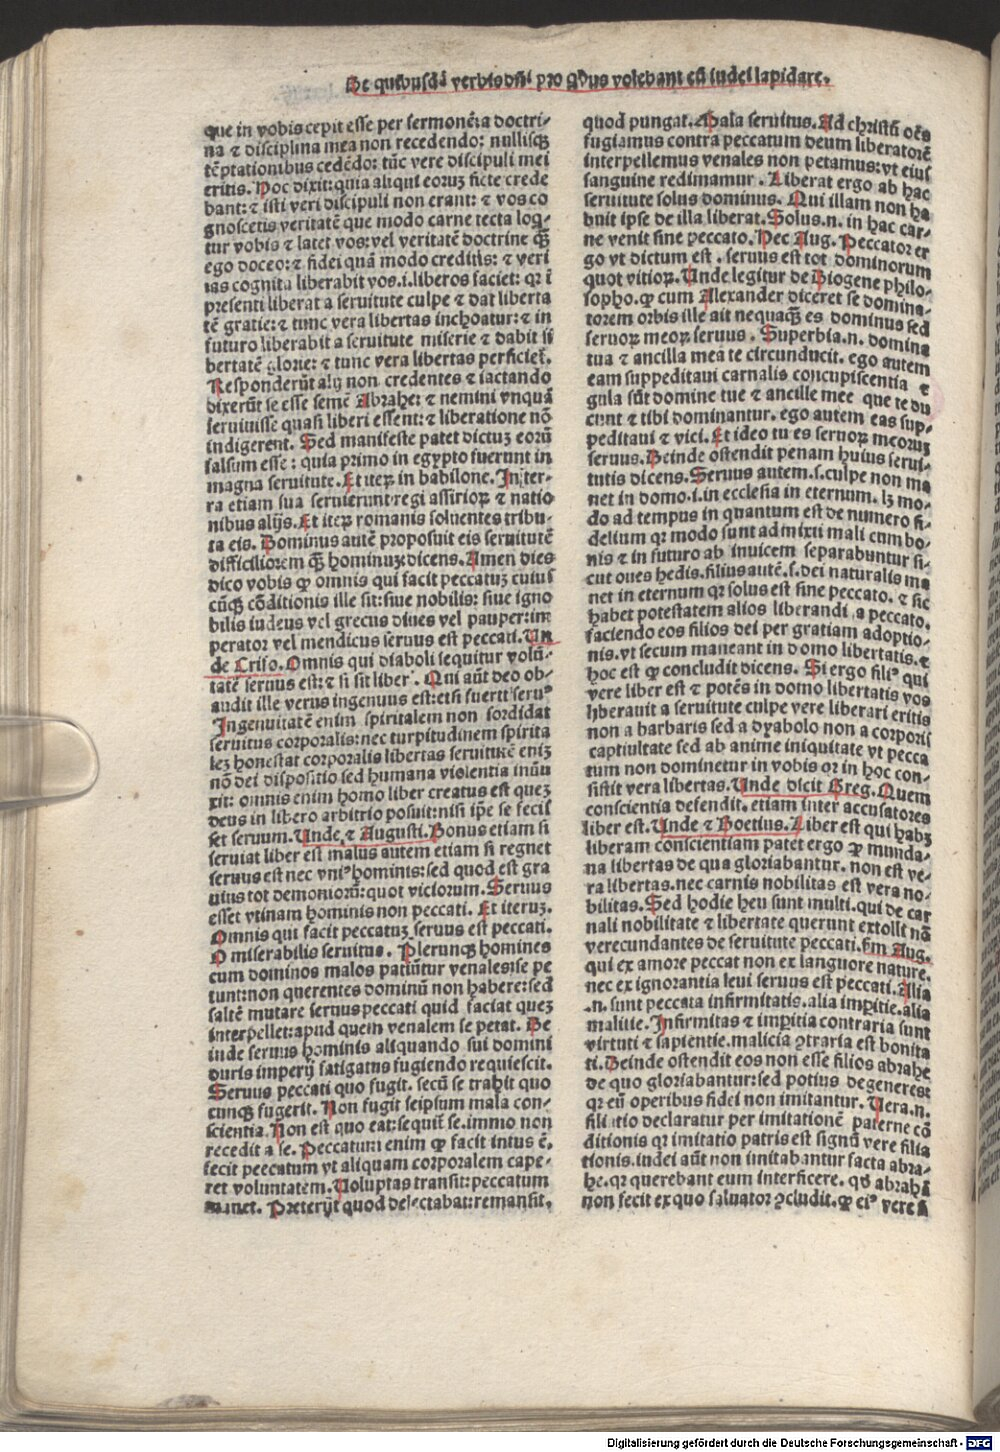 De quibusdā verbis dn̄i pro qbus volebant eū iudei lapidare.
que in vobis cepit esse per sermonē: a doctri-
na ⁊ disciplina mea non recedendo: nullisqꝫ
tēptationibus cedēdo: tūc vere discipuli mei
eritis. Hoc dixit: quia aliqui eorum ficte crede
bant: ⁊ isti veri discipuli non erant: ⁊ vos co
gnoscetis veritatē que modo carne tecta loq̄-
tur vobis ⁊ latet vos: vel veritatē doctrine qm̄
ego doceo: ⁊ fidei quā modo creditis: ⁊ veri
tas cognita liberabit vos .i. liberos faciet: qr ī
presenti liberat a seruitute culpe ⁊ dat liberta
tē gratie: ⁊ tunc vera libertas inchoatur: ⁊ in
futuro liberabit a seruitute miserie ⁊ dabit li
bertatē glorie: ⁊ tunc vera libertas perficiet̄.
Responderūt alij non credentes ⁊ iactando
dixerūt se esse semē Abrahe: ⁊ nemini vnquā
seruiuisse quasi liberi essent: ⁊ liberatione nō
indigerent. Sed manifeste patet dictuꝫ eorū
falsum esse: quia primo in egypto fuerunt in
magna seruitute. Et iteꝝ in babilone. In ter-
ra etiam sua seruierunt regi assirioꝝ ⁊ natio
nibus alijs. Et iteꝝ romanis soluentes tribu-
ta eis. Dominus autē proposuit eis seruitutē
difficiliorem qꝫ hominuꝫ dicens. Amen dies
dico vobis ꝙ omnis qui facit peccatuꝫ cuius
cūqꝫ cōditionis ille sit: siue nobilis: siue igno
bilis iudeus vel grecus diues vel pauper: im
perator vel mendicus seruus est peccati. Un
de Criso. Omnis qui diaboli sequitur volū-
tatē seruus est: ⁊ si sit liber. Qui aūt deo ob-
audit ille verus ingenuus est: etsi fuerit seruꝰ
Ingenuitatē enim spiritalem non sordidat
seruitus corporalis: nec turpitudinem spirita
leꝫ honestat corporalis libertas seruitutē eniꝫ
nō dei dispositio sed humana violentia indu
xit: omnis enim homo liber creatus est queꝫ
deus in libero arbitrio posuit: nisi ip̄e se fecis
set seruum. Unde ⁊ Augusti. Bonus etiam si
seruiat liber est malus autem etiam si regnet
seruus est nec vniꝰ hominis: sed quod est gra
uius tot demoniorū: quot viciorum. Seruus
esset vtinam hominis non peccati. Et iteruꝫ.
Omnis qui facit peccatuꝫ seruus est peccati.
O miserabilis seruitus. Plerunqꝫ homines
cum dominos malos patiūtur venales se pe
tunt: non querentes dominū non habere: sed
saltē mutare seruus peccati quid faciat queꝫ
interpellet: apud quem venalem se petat. De
inde seruus hominis aliquando sui domini
duris imperijs fatigatus fugiendo requiescit.
Seruus peccati quo fugit. secū se trahit quo
cunqꝫ fugerit. Non fugit seipsum mala con-
scientia. Non est quo eat: sequit̄ se. immo non
recedit a se. Peccatum enim ꝙ facit intus ē.
fecit peccatum vt aliquam corporalem cape-
ret voluntatem. Voluptas transit: peccatum
manet. Preterijt quod delectabat: remansit.
quod pungat. Mala seruitus. Ad christū oēs
fugiamus contra peccatum deum liberatorē
interpellemus venales non petamus: vt eius
sanguine redimamur. Liberat ergo ab hac
seruitute solus dominus. Qui illam non ha
buit ipse de illa liberat. Solus .n. in hac car-
ne venit sine peccato. Hec Aug. Peccator er
go vt dictum est. seruus est tot dominorum
quot vitioꝝ. Unde legitur de Diogene philo-
sopho. ꝙ cum Alexander diceret se domina-
torem orbis ille ait nequaqꝫ es dominus sed
seruoꝝ meoꝝ seruus. Superbia .n. domina
tua ⁊ ancilla mea te circunducit. ego autem
eam suppeditaui carnalis concupiscentia ⁊
gula sūt domine tue ⁊ ancille mee que te du
cunt ⁊ tibi dominantur. ego autem eas sup-
peditaui ⁊ vici. Et ideo tu es seruoꝝ meoruꝫ
seruus. Deinde ostendit penam huius serui-
tutis dicens. Seruus autem .s. culpe non ma
net in domo .i. in ecclesia in eternum. lꝫ mo-
do ad tempus in quantum est de numero fi-
delium qr modo sunt admixti mali cum bo-
nis ⁊ in futuro ab inuicem separabuntur si-
cut oues hedis. filius autē .s. dei naturalis ma
net in eternum qr solus est sine peccato. ⁊ sic
habet potestatem alios liberandi a peccato.
faciendo eos filios dei per gratiam adoptio-
nis. vt secum maneant in domo libertatis. ⁊
hoc est ꝙ concludit dicens. Si ergo filiꝰ qui
vere liber est ⁊ potēs in domo libertatis vos
liberauit a seruitute culpe vere liberari eritis
non a barbaris sed a dyabolo non a corporis
captiuitate sed ab anime iniquitate vt pecca
tum non dominetur in vobis qr in hoc con-
sistit vera libertas. Unde dicit Greg. Quem
conscientia defendit. etiam inter accusatores
liber est. Unde ⁊ Boetius. Liber est qui habꝫ
liberam conscientiam patet ergo ꝙ munda-
na libertas de qua gloriabantur. non est ve-
ra libertas. nec carnis nobilitas est vera no-
bilitas. Sed hodie heu sunt multi. qui de car
nali nobilitate ⁊ libertate querunt extolli nō
verecundantes de seruitute peccati. Em̄ Aug.
qui ex amore peccat non ex languore nature.
nec ex ignorantia leui seruus est peccati. Alia
.n. sunt peccata infirmitatis. alia imp̄itie. alia
malitie. Infirmitas ⁊ imp̄itia contraria sunt
virtuti ⁊ sapientie. malicia ꝯtraria est bonita
ti. Deinde ostendit eos non esse filios abrahe
de quo gloriabantur: sed potius degenerest
qr eū operibus fidei non imitantur. Vera .n.
filiatio declaratur per imitationē paterne cō
ditionis qr imitatio patris est signū vere filia
tionis. iudei aūt non imitabantur facta abra-
he. qr querebant eum interficere. qd abrahā
non fecit ex quo saluator ꝯcludit. ꝙ eiꝰ vere ā
Digitalisierung gefördert durch die Deutsche Forschungsgemeinschaft - DFG